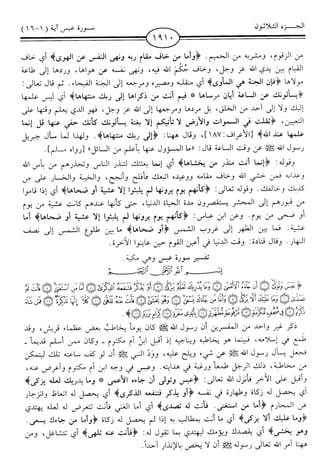 الجـــزء الثلاثـون
سـورة عبس آية (١-١٦)
١٩١٠
من الزقوم، ومشربه من الحميم. ﴿وأما من خاف مقام ربه ونهى النفس عن الهوى﴾ أي خاف
القيام بين يدي الله عز وجل، وخاف حُكْمَ الله فيه، ونهى نفسه عن هواها، وردها إلى طاعة
مولاها ﴿فإن الجنة هي المأوى﴾ أي منقلبه ومصيره ومرجعه إلى الجنة الفيحاء. ثم قال تعالى:
﴿يسألونك عن الساعة أيان مرساها * فيم أنت من ذكراها إلى ربك منتهاها﴾ أي ليس علمها
إليك ولا إلى أحد من الخلق، بل مردها ومرجعها إلى الله عز وجل، فهو الذي يعلم وقتها على
التعيين، ﴿ثقلت في السموات والأرض لا تأتيكم إلا بغتة يسألونك كأنك حفي عنها قل إنما
علمها عند الله﴾ [الأعراف: ١٨٧]، وقال ههنا: ﴿إلى ربك منتهاها﴾. ولهذا لما سأل جبريل
رسول الله ﷺ عن وقت الساعة قال: «ما المسؤول عنها بأعلم من السائل» [رواه مسلم].
وقوله: ﴿إنما أنت منذر من يخشاها﴾ أي إنما بعثتك لتنذر الناس وتحذرهم من بأس الله
وعذابه فمن خشي الله وخاف مقامه ووعيده اتبعك فأفلح وأنجح، والخيبة والخسار على من
كذبك وخالفك. وقوله تعالى: ﴿كأنهم يوم يرونها لم يلبثوا إلا عشية أو ضحاها﴾ أي إذا قاموا
من قبورهم إلى المحشر يستقصرون مدة الحياة الدنيا، حتى كأنها عندهم كانت عشية من يوم
أو ضحى من يوم. وعن ابن عباس: ﴿كأنهم يوم يرونها لم يلبثوا إلا عشية أو ضحاها﴾ أما
عشية: فما بين الظهر إلى غروب الشمس ﴿أو ضحاها﴾ ما بين طلوع الشمس إلى نصف
النهار. وقال قتادة: وقت الدنيا في أعين القوم حين عاينوا الآخرة.
تفسير سورة عبس وهي مكية.
ذكر غير واحد من المفسرين أن رسول الله ﷺ كان يوماً يخاطبُ بعض عظماء قريش، وقد
طمع في إسلامه، فبينما هو يخاطبه ويناجيه إذ أقبل ابنُ أم مكتوم - وكان ممن أسلم قديماً -
فجعل يسأل رسول الله ﷺ عن شيء ويلح عليه، وودّ النبي ﷺ أن لو كف ساعته تلك ليتمكن
من مخاطبة، ذلك الرجل طمعاً ورغبة في هدايته. وعبس في وجه ابن أم مكتوم وأعرض عنه،
وأقبل على الآخر فأنزل الله تعالى: ﴿عبس وتولى أن جاءه الأعمى * وما يدريك لعله يزكى﴾
أي يحصل له زكاة وطهارة في نفسه ﴿أو يذكر فتنفعه الذكرى﴾ أي يحصل له اتعاظ وانزجار
عن المحارم ﴿أما من استغنى. فأنت له تصدى﴾ أي أما الغني فأنت تتعرض له لعله يهتدي
﴿وما عليك ألا يزكى﴾ أي ما أنت بمطالب به إذا لم يحصل له زكاة ﴿وأما من جاءك يسعى.
وهو يخشى﴾ أي يقصدك ويؤمك ليهتدي بما تقول له: ﴿فأنت عنه تلهى﴾ أي تتشاغل، ومن
ههنا أمر الله تعالى رسوله ﷺ أن لا يخص بالإنذار أحداً.